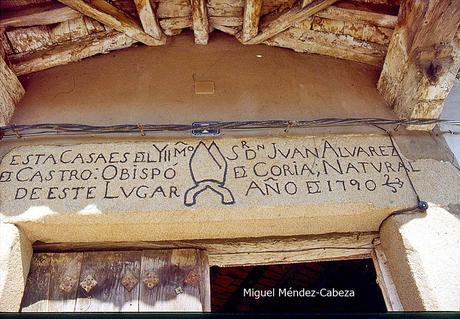 ESTA CASA ES EL YllMº SR DN JUAN ALVAREZ
E CASTRO: OBISPO E CORIA, NATURAL
DE ESTE LUGAR AÑO E 1790
Miguel Méndez-Cabeza